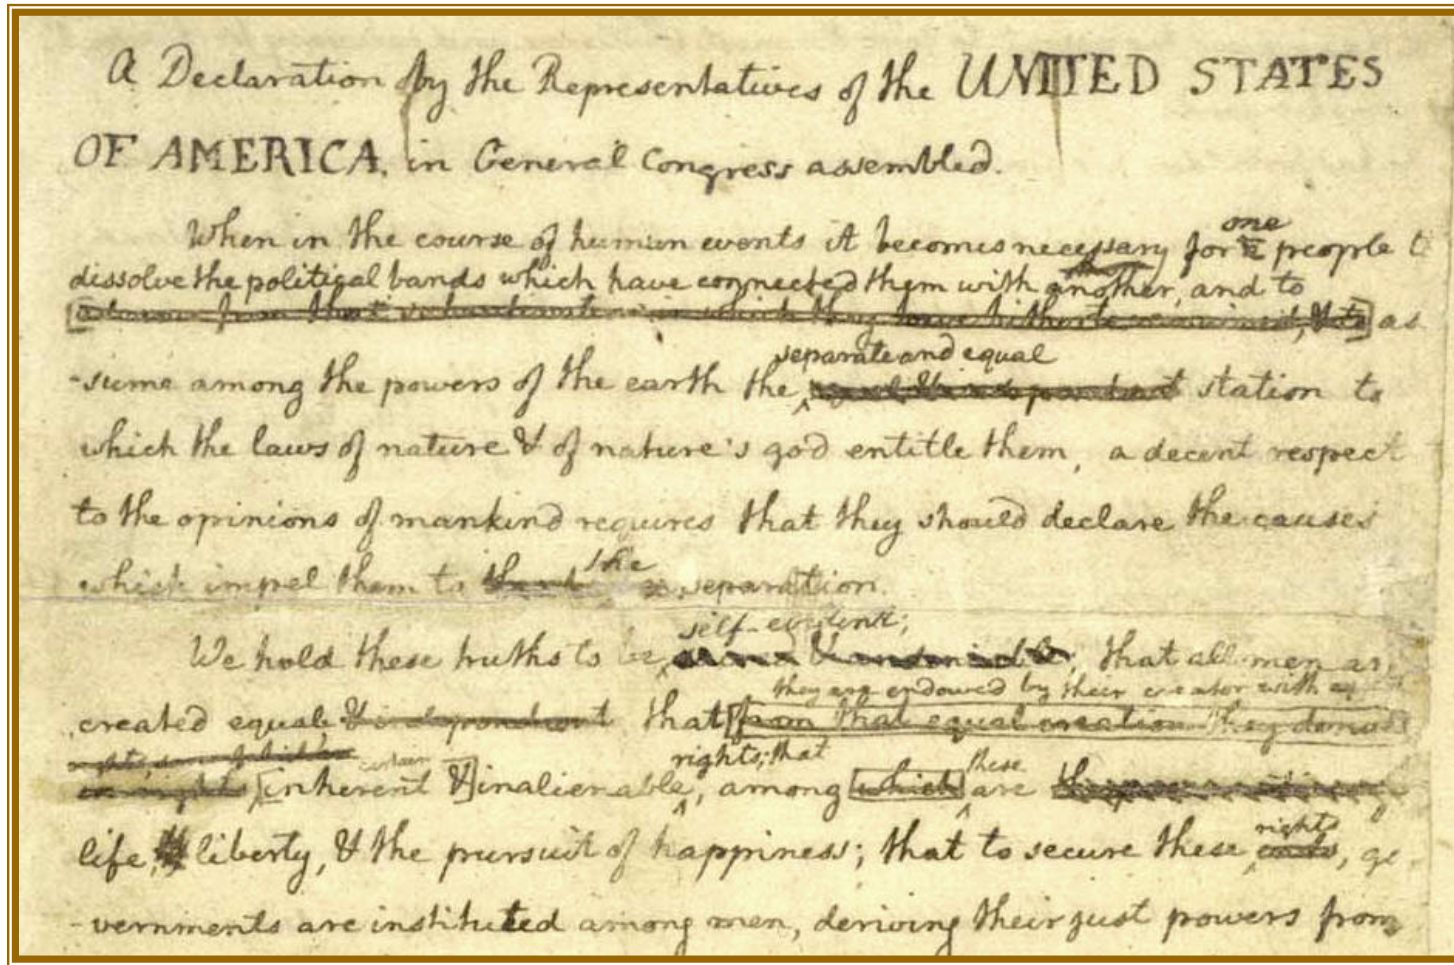 A Declaration by the Representatives of the UNITED STATES
OF AMERICA, in General Congress assembled.
When in the course of human events it becomes necessary for one people t
dissolve the political bands which have connected them with another, and to
as
separate and equal
-sume among the powers of the earth the station to
which the laws of nature & of nature's god entitle them, a decent respect
to the opinions of mankind requires that they should declare the causes
which impel them to the separation.
self-evident;
We hold these truths to be, that all men ar
they are endowed by their creator with
created equal & independent that [from that equal creation they
rights; that
[inherent &] inalienable, among [which] these are
life, liberty, & the pursuit of happiness; that to secure these rights ends, go
-vernments are instituted among men, deriving their just powers from